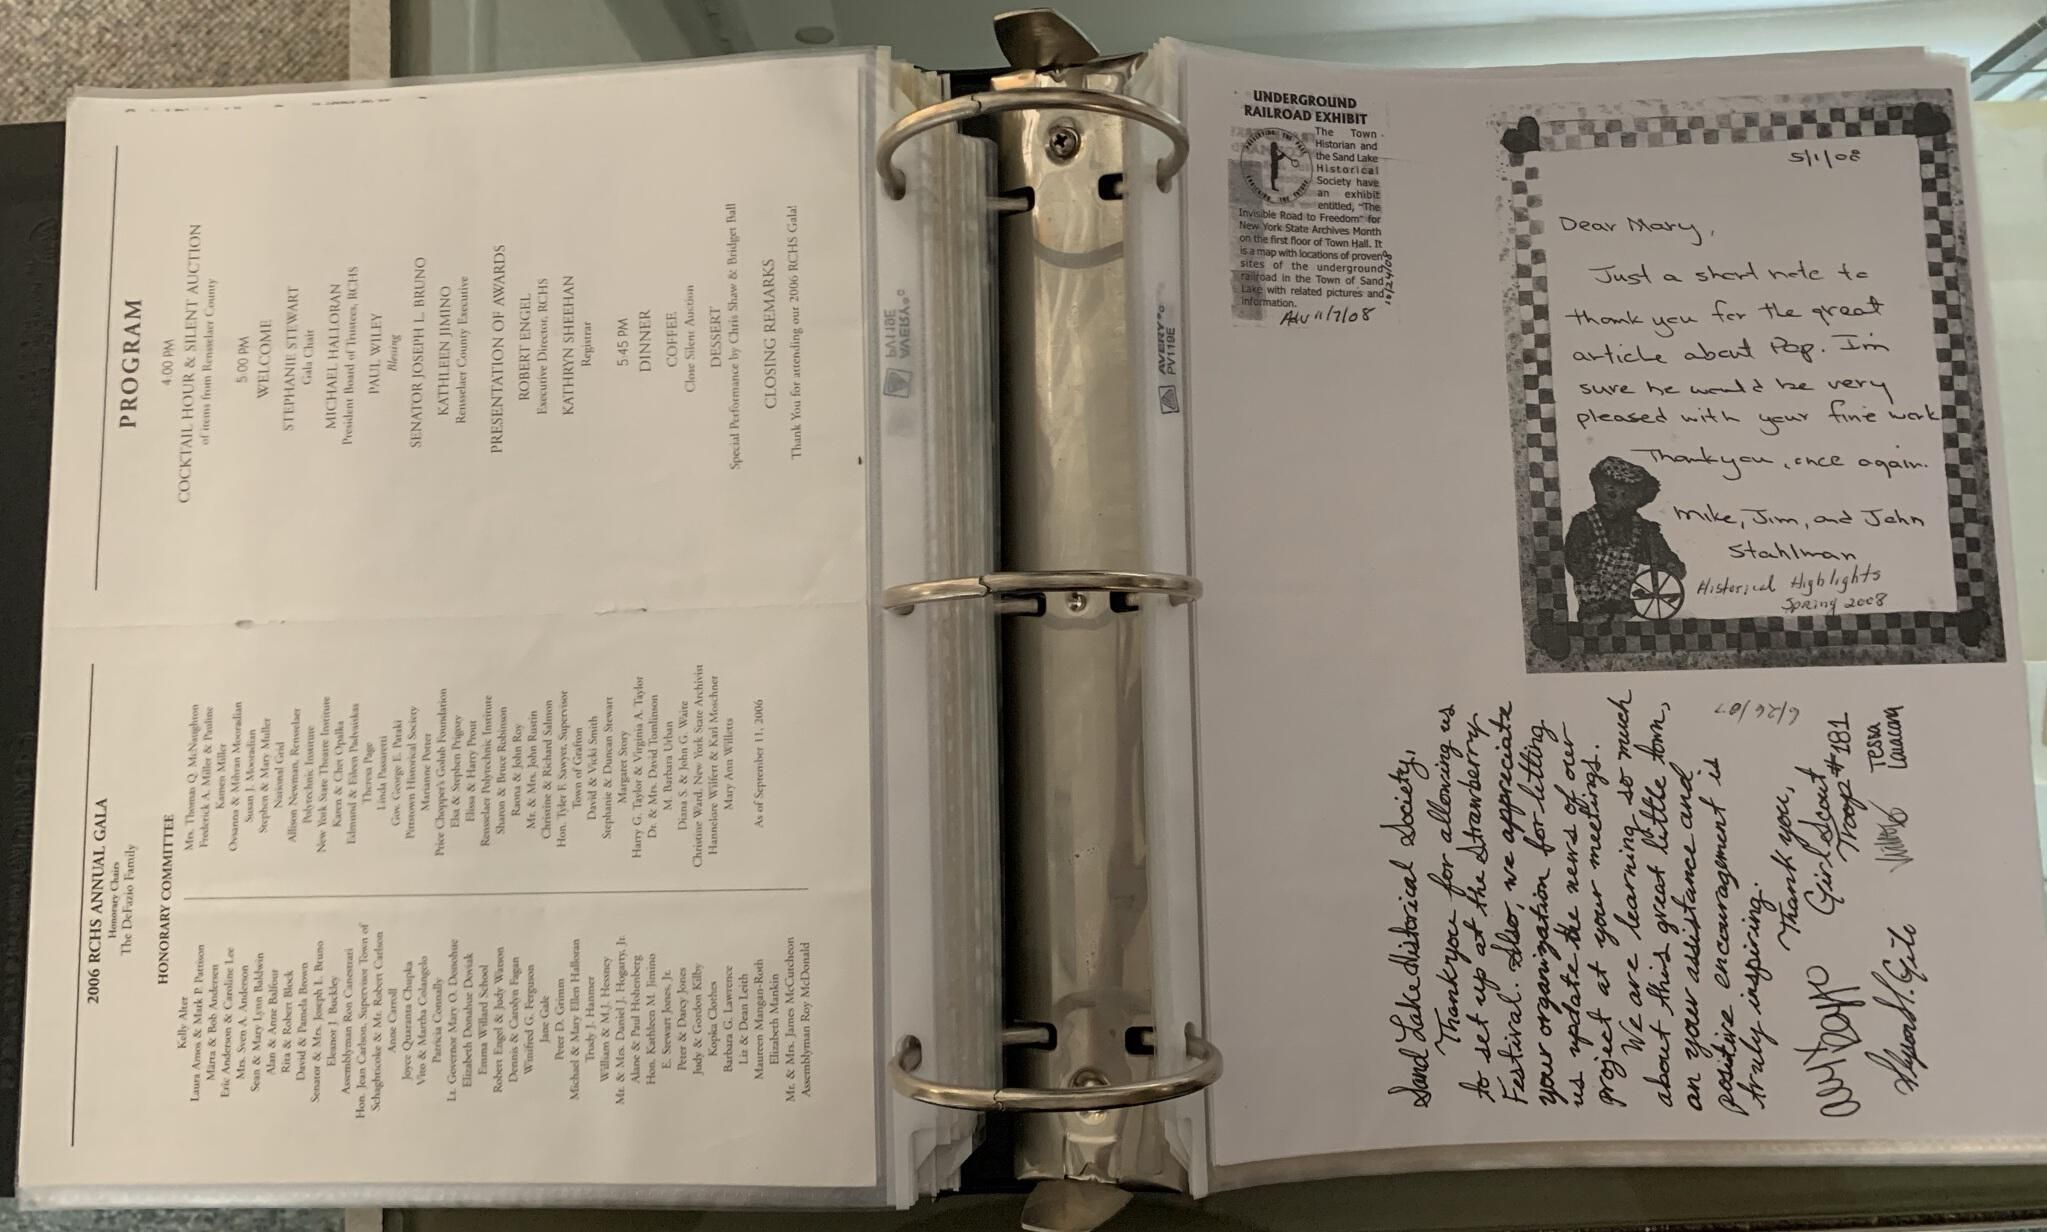 2006 RCHS ANNUAL GALA
Honorary Chairs
The DeFazio Family
HONORARY COMMITTEE
Kelly Alter
Laura Amos & Mark P. Pattison
Marta & Bob Andersen
Eric Anderson & Caroline Lee
Mrs. Sven A. Anderson
Sean & Mary Lynn Baldwin
Alan & Anne Balfour
Rita & Robert Block
David & Pamela Brown
Senator & Mrs. Joseph L. Bruno
Eleanor J. Buckley
Assemblyman Ron Canestrari
Hon. Jean Carlson, Supervisor Town of
Schaghticoke & Mr. Robert Carlson
Anne Carroll
Joyce Quaranta Chupka
Vito & Martha Colangelo
Patricia Connally
Lt. Governor Mary O. Donohue
Elizabeth Donahue Doviak
Emma Willard School
Robert Engel & Judy Watson
Dennis & Carolyn Fagan
Winifred G. Ferguson
Jane Gale
Peter D. Grimm
Michael & Mary Ellen Halloran
Trudy J. Hanmer
William & M.J. Hessney
Mr. & Mrs. Daniel J. Hogarty, Jr.
Alane & Paul Hohenberg
Hon. Kathleen M. Jimino
E. Stewart Jones, Jr.
Peter & Darcy Jones
Judy & Gordon Kilby
Kopka Clothes
Barbara G. Lawrence
Liz & Dean Leith
Maureen Mangan-Roth
Elizabeth Mankin
Mr. & Mrs. James McCutcheon
Assemblyman Roy McDonald
Mrs. Thomas Q. McNaughton
Frederick A. Miller & Pauline
Kamen Miller
Ovsanna & Mihran Mooradian
Susan J. Mooradian
Stephen & Mary Muller
National Grid
Allison Newman, Rensselaer
Polytechnic Institute
New York State Theatre Institute
Karen & Chet Opalka
Edmund & Eileen
Theresa Page
Linda Passaretti
Gov. George E. Pataki
Pittstown Historical Society
Marianne Potter
Price Chopper's Golub Foundation
Elsa & Stephen Prigozy
Elissa & Harry Prout
Rensselaer Polytechnic Institute
Sharon & Bruce Robinson
Raona & John Roy
Mr. & Mrs. John Rustin
Christine & Richard Salmon
Hon. Tyler F. Sawyer, Supervisor
Town of Grafton
David & Vicki Smith
Stephanie & Duncan Stewart
Margaret Story
Harry G. Taylor & Virginia A. Taylor
Dr. & Mrs. David Tomlinson
M. Barbara Urban
Diana S. & John G. Waite
Christine Ward, New York State Archivist
Hannelore Wilfert & Karl Moschner
Mary Ann Willetts
As of September 11, 2006
PROGRAM
4:00 PM
COCKTAIL HOUR & SILENT AUCTION
of items from Rensselaer County
5:00 PM
WELCOME
STEPHANIE STEWART
Gala Chair
MICHAEL HALLORAN
President Board of Trustees, RCHS
PAUL WILEY
Blessing
SENATOR JOSEPH L. BRUNO
KATHLEEN JIMINO
Rensselaer County Executive
PRESENTATION OF AWARDS
ROBERT ENGEL
Executive Director, RCHS
KATHRYN SHEEHAN
Registrar
5:45 PM
DINNER
COFFEE
Close Silent Auction
DESSERT
Special Performance by Chris Shaw & Bridget Ball
CLOSING REMARKS
Thank You for attending our 2006 RCHS Gala!
AVERY
PV119E
AVERY
PV119E
UNDERGROUND
RAILROAD EXHIBIT
The Town
Historian and
the Sand Lake
Historical
Society have
an exhibit
entitled, "The
Invisible Road to Freedom" for
New York State Archives Month
on the first floor of Town Hall. It
is a map with locations of proven
sites of the underground
railroad in the Town of Sand
Lake with related pictures and
information.
10/24/08
Adv 11/7/08
5/1/08
Dear Mary,
Just a short note to
thank you for the great
article about Pop. I'm
sure he would be very
pleased with your fine work
Thank you, once again.
Mike, Jim, and John
Stahlman
Historical Highlights
Spring 2008
Sand Lake Historical Society,
Thank you for allowing us
to set up at the Strawberry
Festival. Also, we appreciate
your organization for letting
us update the news of our
project at your meetings.
We are learning so much
about this great little town,
an your assistance and
positive encouragement is
truly inspiring.
6/26/07
Thank you,
Girl Scout
Troop #181
Tessa